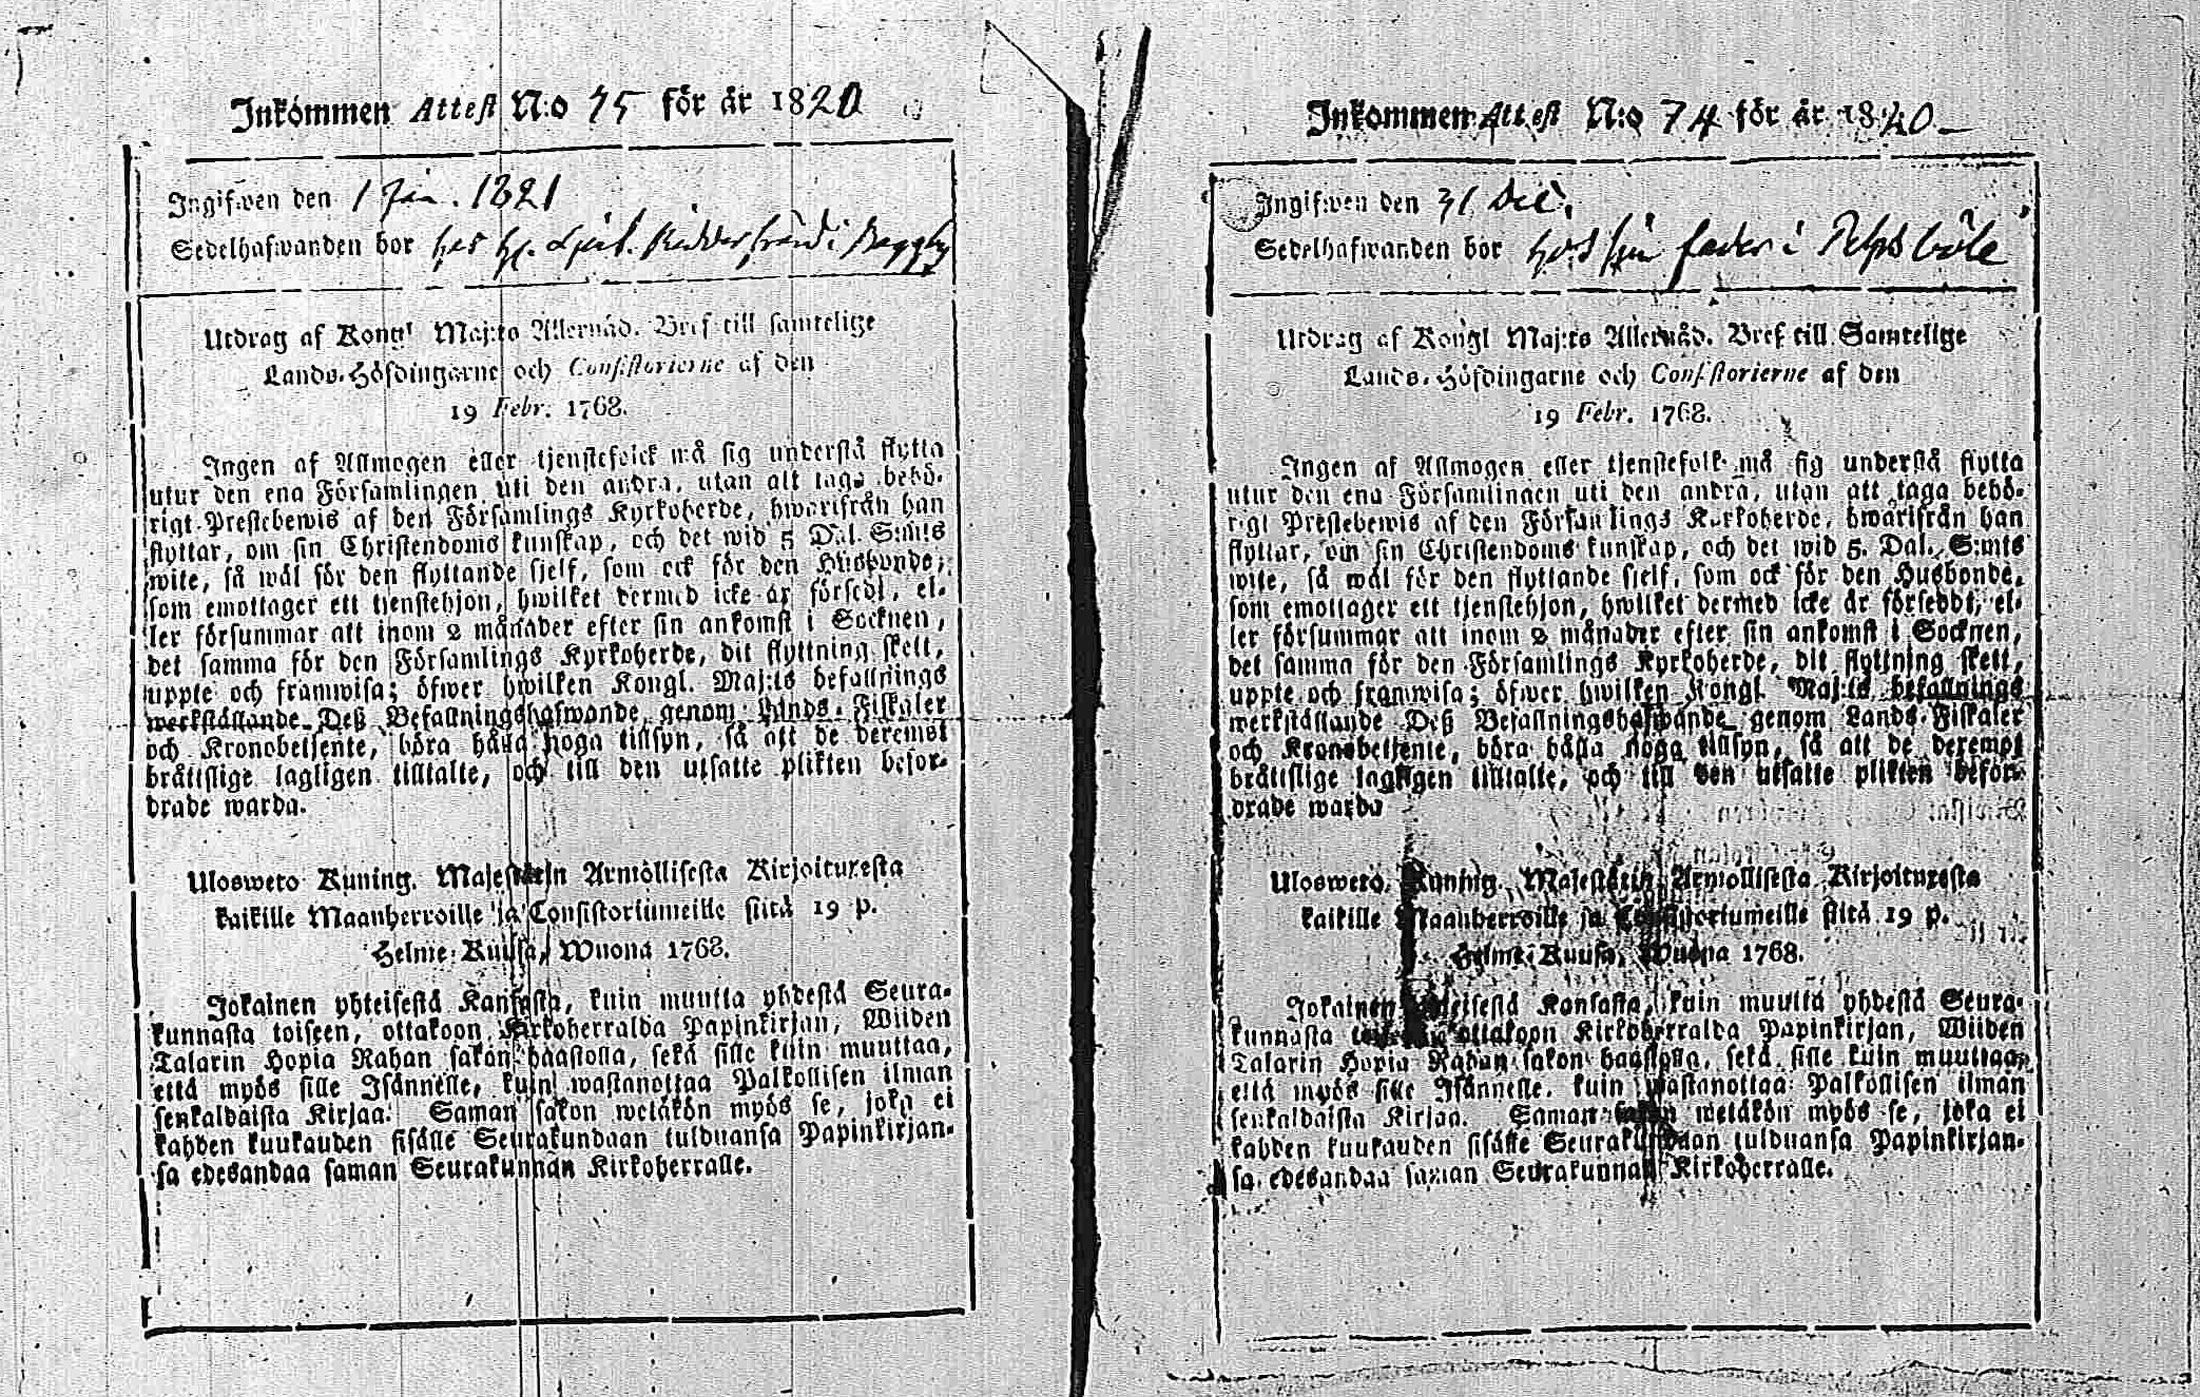 Inkommen Attest N:o 75 för år 1820
Ingifwen den 1 Jan. 1821
Sedelhafwanden bor hos i Baggby
Utdrag af Kongl Maj:ts Allernåd. Bref till samtelige
Lands-Höfdingarne och Consistorierne af den
19 Febr. 1768.
Ingen af Allmogen eller tjenstefolck må sig understå flytta
utur den ena Församlingen uti den andra, utan att taga behö-
rigt Prestebewis af den Församlings Kyrkoherde, hwarifrån han
flyttar, om sin Christendoms kunskap, och det wid 5 Dal. S:mts
wite, så wäl för den flyttande sjelf, som ock för den Husbonde,
som emottager ett tjenstehjon, hwilket dermed icke är försedt, el-
ler försummar att inom 2 månader efter sin ankomst i Socknen,
det samma för den Församlings Kyrkoherde, dit flyttning skett,
uppte och framwisa; öfwer hwilken Kongl. Maj:ts befallnings
werkställande Deß Befallningshafwande genom Lands-Fiskaler
och Kronobetjente, böra hålla noga tillsyn, så att de deremot
bråttslige lagligen tilltalte, och till den utsatte plikten befor-
drade warda.
Ulosweto Kuning. Majestätin Armollisesta Kirjoituxesta
kaikille Maanherroille ja Consistoriumeille siitä 19 p.
Helme-Kuusa, Wuona 1768.
Jokainen yhteisestä Kansasta, kuin muutta yhdestä Seura-
kunnasta toiseen, ottakoon Kirkoherralda Papinkirjan, Wiiden
Talarin Hopia Rahan sakon haastolla, sekä sille kuin muuttaa,
että myös sille Isännelle, kuin wastanottaa Palkollisen ilman
senkaldaista Kirjaa. Saman sakon wetäkön myös se, joka ei
kahden kuukauden sisälle Seurakundaan tulduansa Papinkirjan-
sa edesandaa saman Seurakunnan Kirkoherralle.
Inkommen Attest N:o 74 för år 1820
Ingifwen den 31 Dec.
Sedelhafwanden bor hos sin fader i
Utdrag af Kongl Maj:ts Allernåd. Bref till Samtelige
Lands-Höfdingarne och Consistorierne af den
19 Febr. 1768.
Ingen af Allmogen eller tjenstefolk må sig understå flytta
utur den ena Församlingen uti den andra, utan att taga behö-
rigt Prestebewis af den Församlings Kyrkoherde, hwarifrån han
flyttar, om sin Christendoms kunskap, och det wid 5. Dal. S:mts
wite, så wäl för den flyttande sjelf, som ock för den Husbonde,
som emottager ett tjenstehjon, hwilket dermed icke är förseddt, el-
ler försummar att inom 2 månader efter sin ankomst i Socknen,
det samma för den Församlings Kyrkoherde, dit flyttning skett,
uppte och framwisa; öfwer hwilken Kongl Maj:ts befallnings
werkställande Deß Befallningshafwande genom Lands-Fiskaler
och Kronobetjente, böra hålla noga tillsyn, så att de deremot
bråttslige lagligen tilltalte, och till den utsatte plikten befor-
drade warda
Ulosweto Kuning. Majestätin Armollisesta Kirjoituxesta
kaikille Maanherroille ja Consistoriumeille siitä 19 p.
Helme-Kuusa, Wuona 1768.
Jokainen yhteisestä Kansasta, kuin muutta yhdestä Seura-
kunnasta toiseen ottakoon Kirkoherralda Papinkirjan, Wiiden
Talarin Hopia Rahan sakon haastolla, sekä sille kuin muuttaa,
että myös sille Isännelle, kuin wastanottaa Palkollisen ilman
senkaldaista Kirjaa. Saman sakon wetäkön myös se, joka ei
kahden kuukauden sisälle Seurakundaan tulduansa Papinkirjan-
sa edesandaa saman Seurakunnan Kirkoherralle.